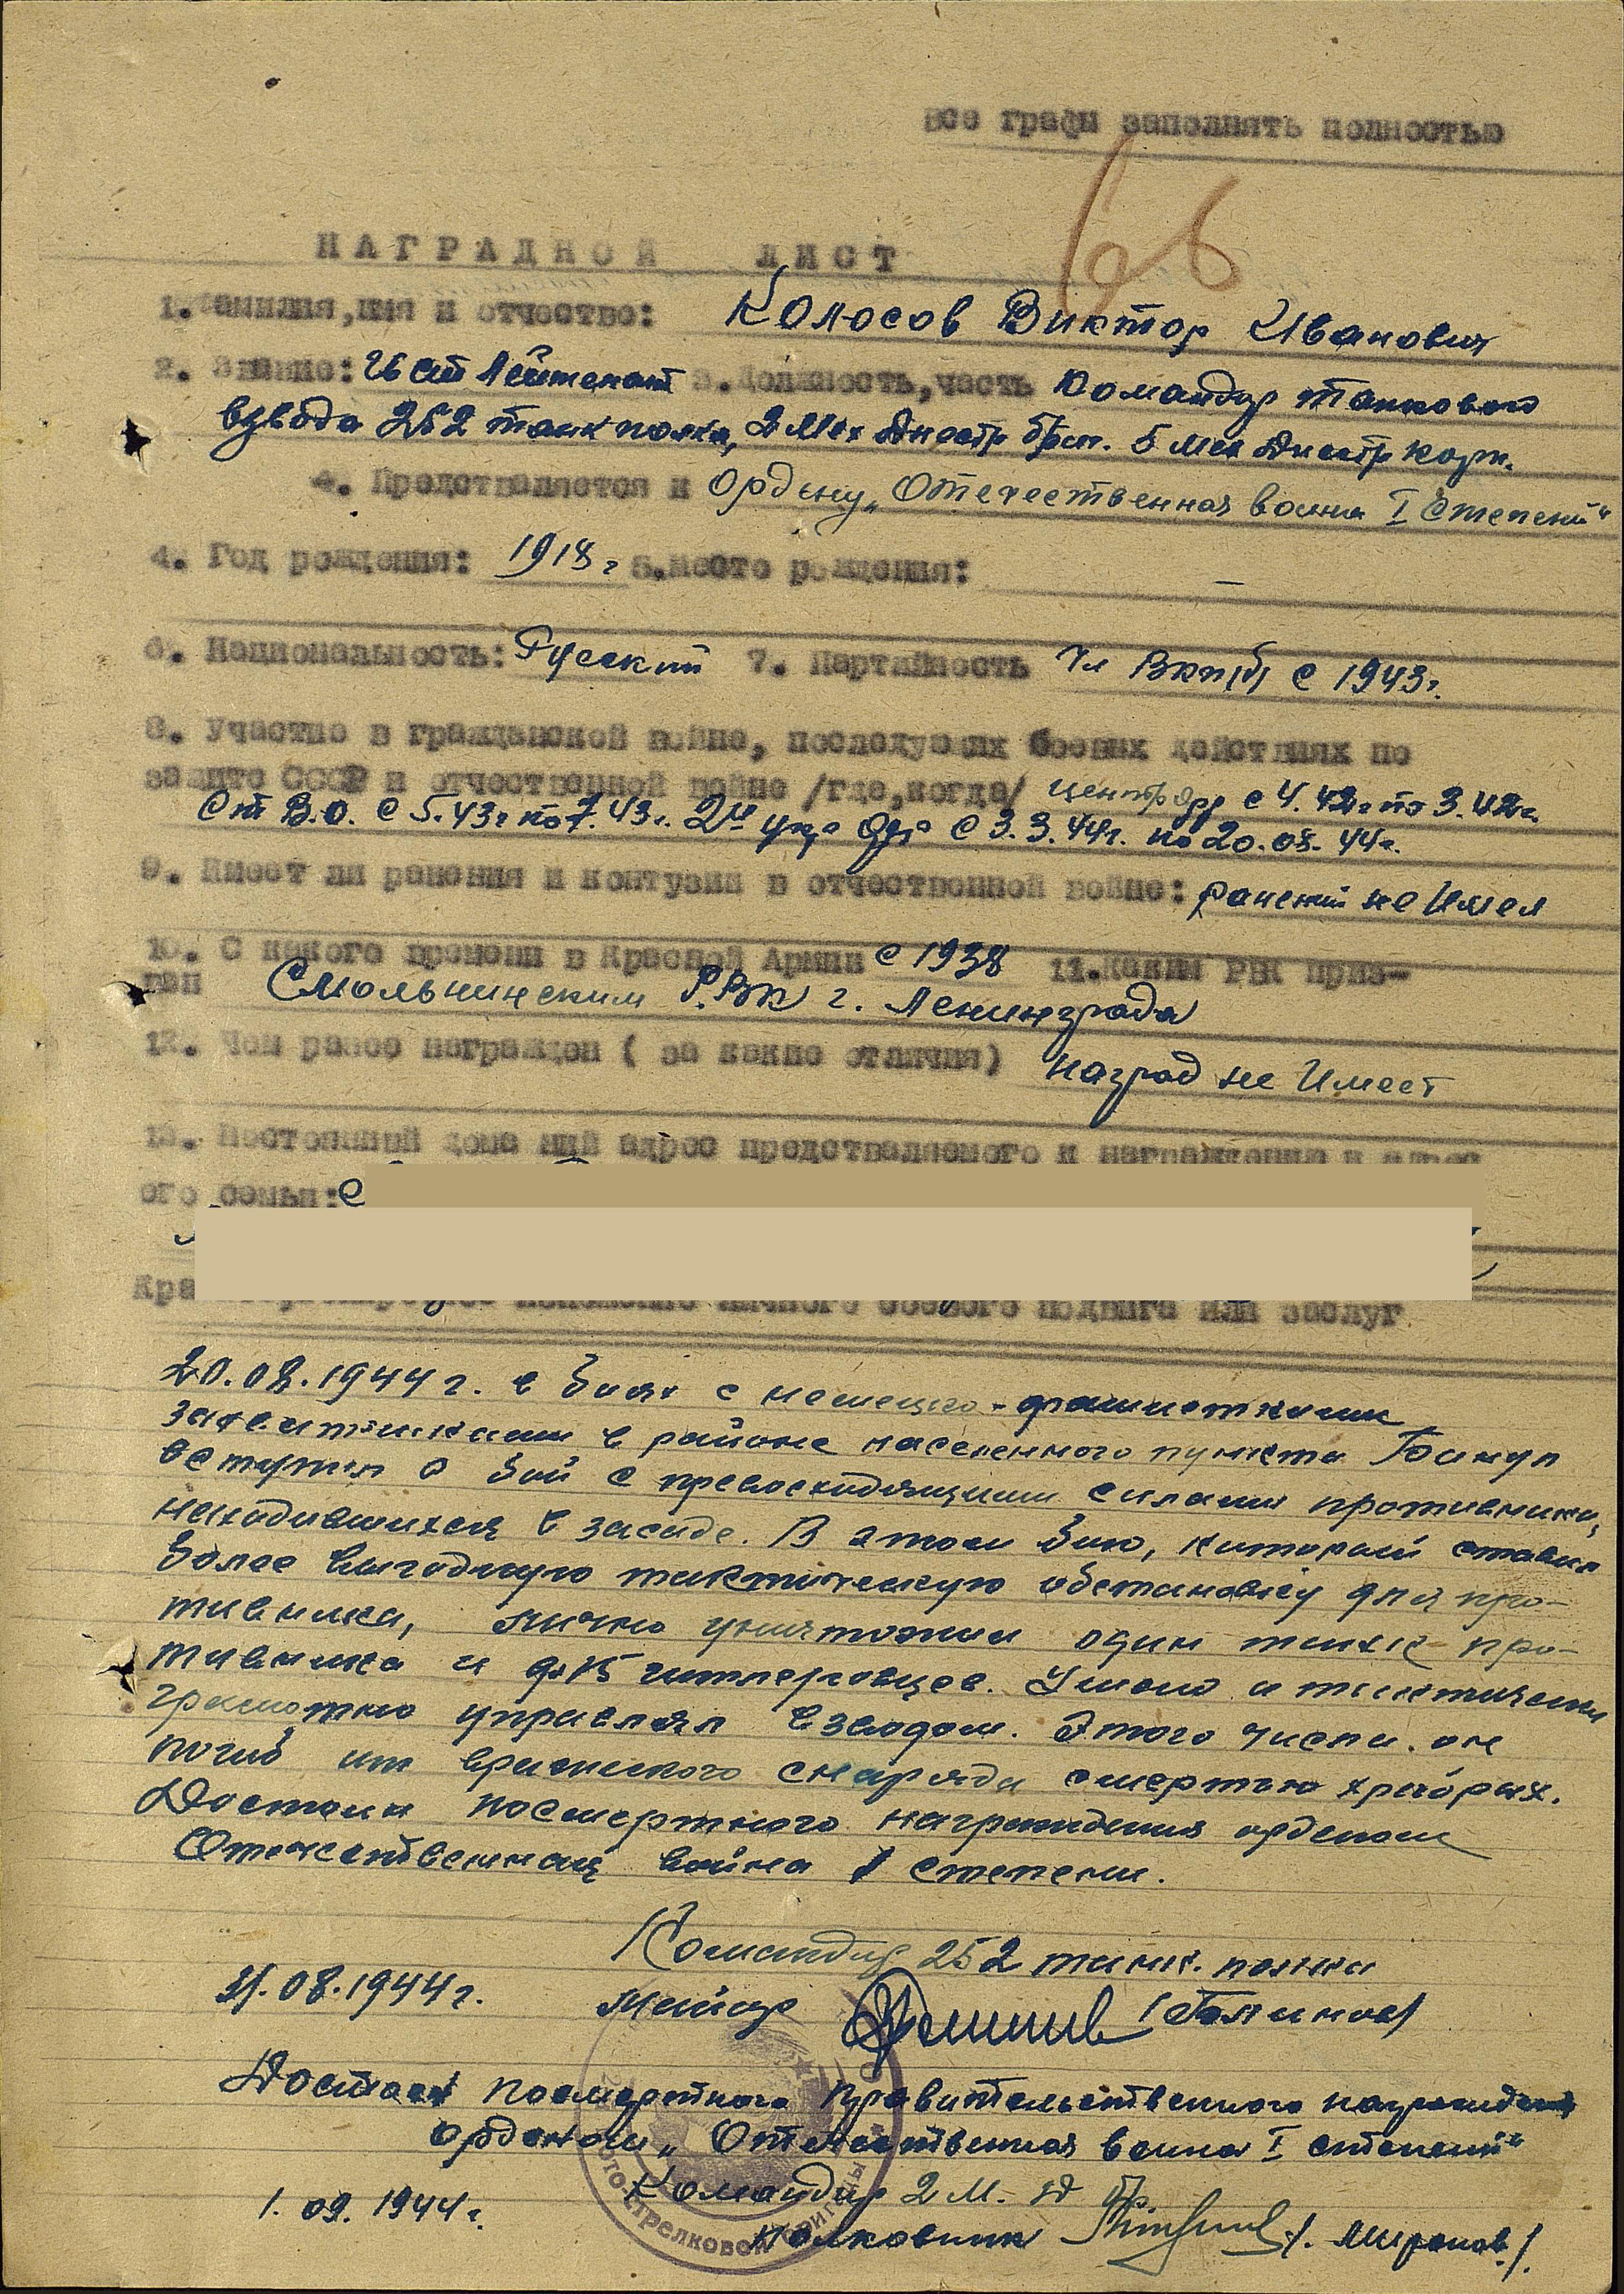 Все графы заполнять полностью
66
НАГРАДНОЙ ЛИСТ
1. Фамилия, имя и отчество: Колосов Виктор Иванович
2. Звание: Гв ст Лейтенант 3. Должность, часть Командир танкового
взвода 252 танк полка, 2 Мех Днестр бр. 5 мех Днестр корп.
4. Представляется к Ордену „Отечественная воина I Степени"
4. Год рождения: 1918 г 5. место рождения: —
6. Национальность: Русский 7. Партийность Чл ВКП(б) с 1943г.
8. Участие в гражданской войне, последующих боевых действиях по
защите СССР и отчественной войне /где, когда/ центр фр с 4.42г по 3.42г.
Ст В.О. с 5.43г по 7.43г. 2й укр фр с 3.3.44г. по 20.08.44г.
9. Имеет ли ранения и контузии в отчественной войне: ранений не Имел
10. С какого времени в Красной Армии с 1938 11. Каким РВК приз-
ван Смольнинским Р.ВК г. Ленинграда
12. Чем ранее награжден ( за какие отличия) наград не Имеет
13. Постоянный домашний адрес представляемого к награждению и адрес
его семьи: С
Кра изложение личного боевого подвига или заслуг
20.08.1944г. в боях с немецко-фашисткими
захватчиками в районе населенного пункта
вступил в бой с превосходящими силами противника,
находившихся в засаде. В этом бою, который ставил
более выгодную тактическую обстановку для про-
тивника, лично уничтожил один танк про-
тивника и до 15 гитлеровцев. Умело и тактически
грамотно управлял взводом. Этого числа он
погиб от вражеского снаряда смертью храбрых.
Достоин посмертного награждения орденом
Отечественная война I степени.
Командир 252 танк. полка
31.08.1944г. майор
Достоен посмертного Правительственного награждения
орденом „Отечественная воина I степени"
Командир 2 М. Д бр.
1.09.1944г. полковник /. Миронов/.
ого-стрелковой бригады